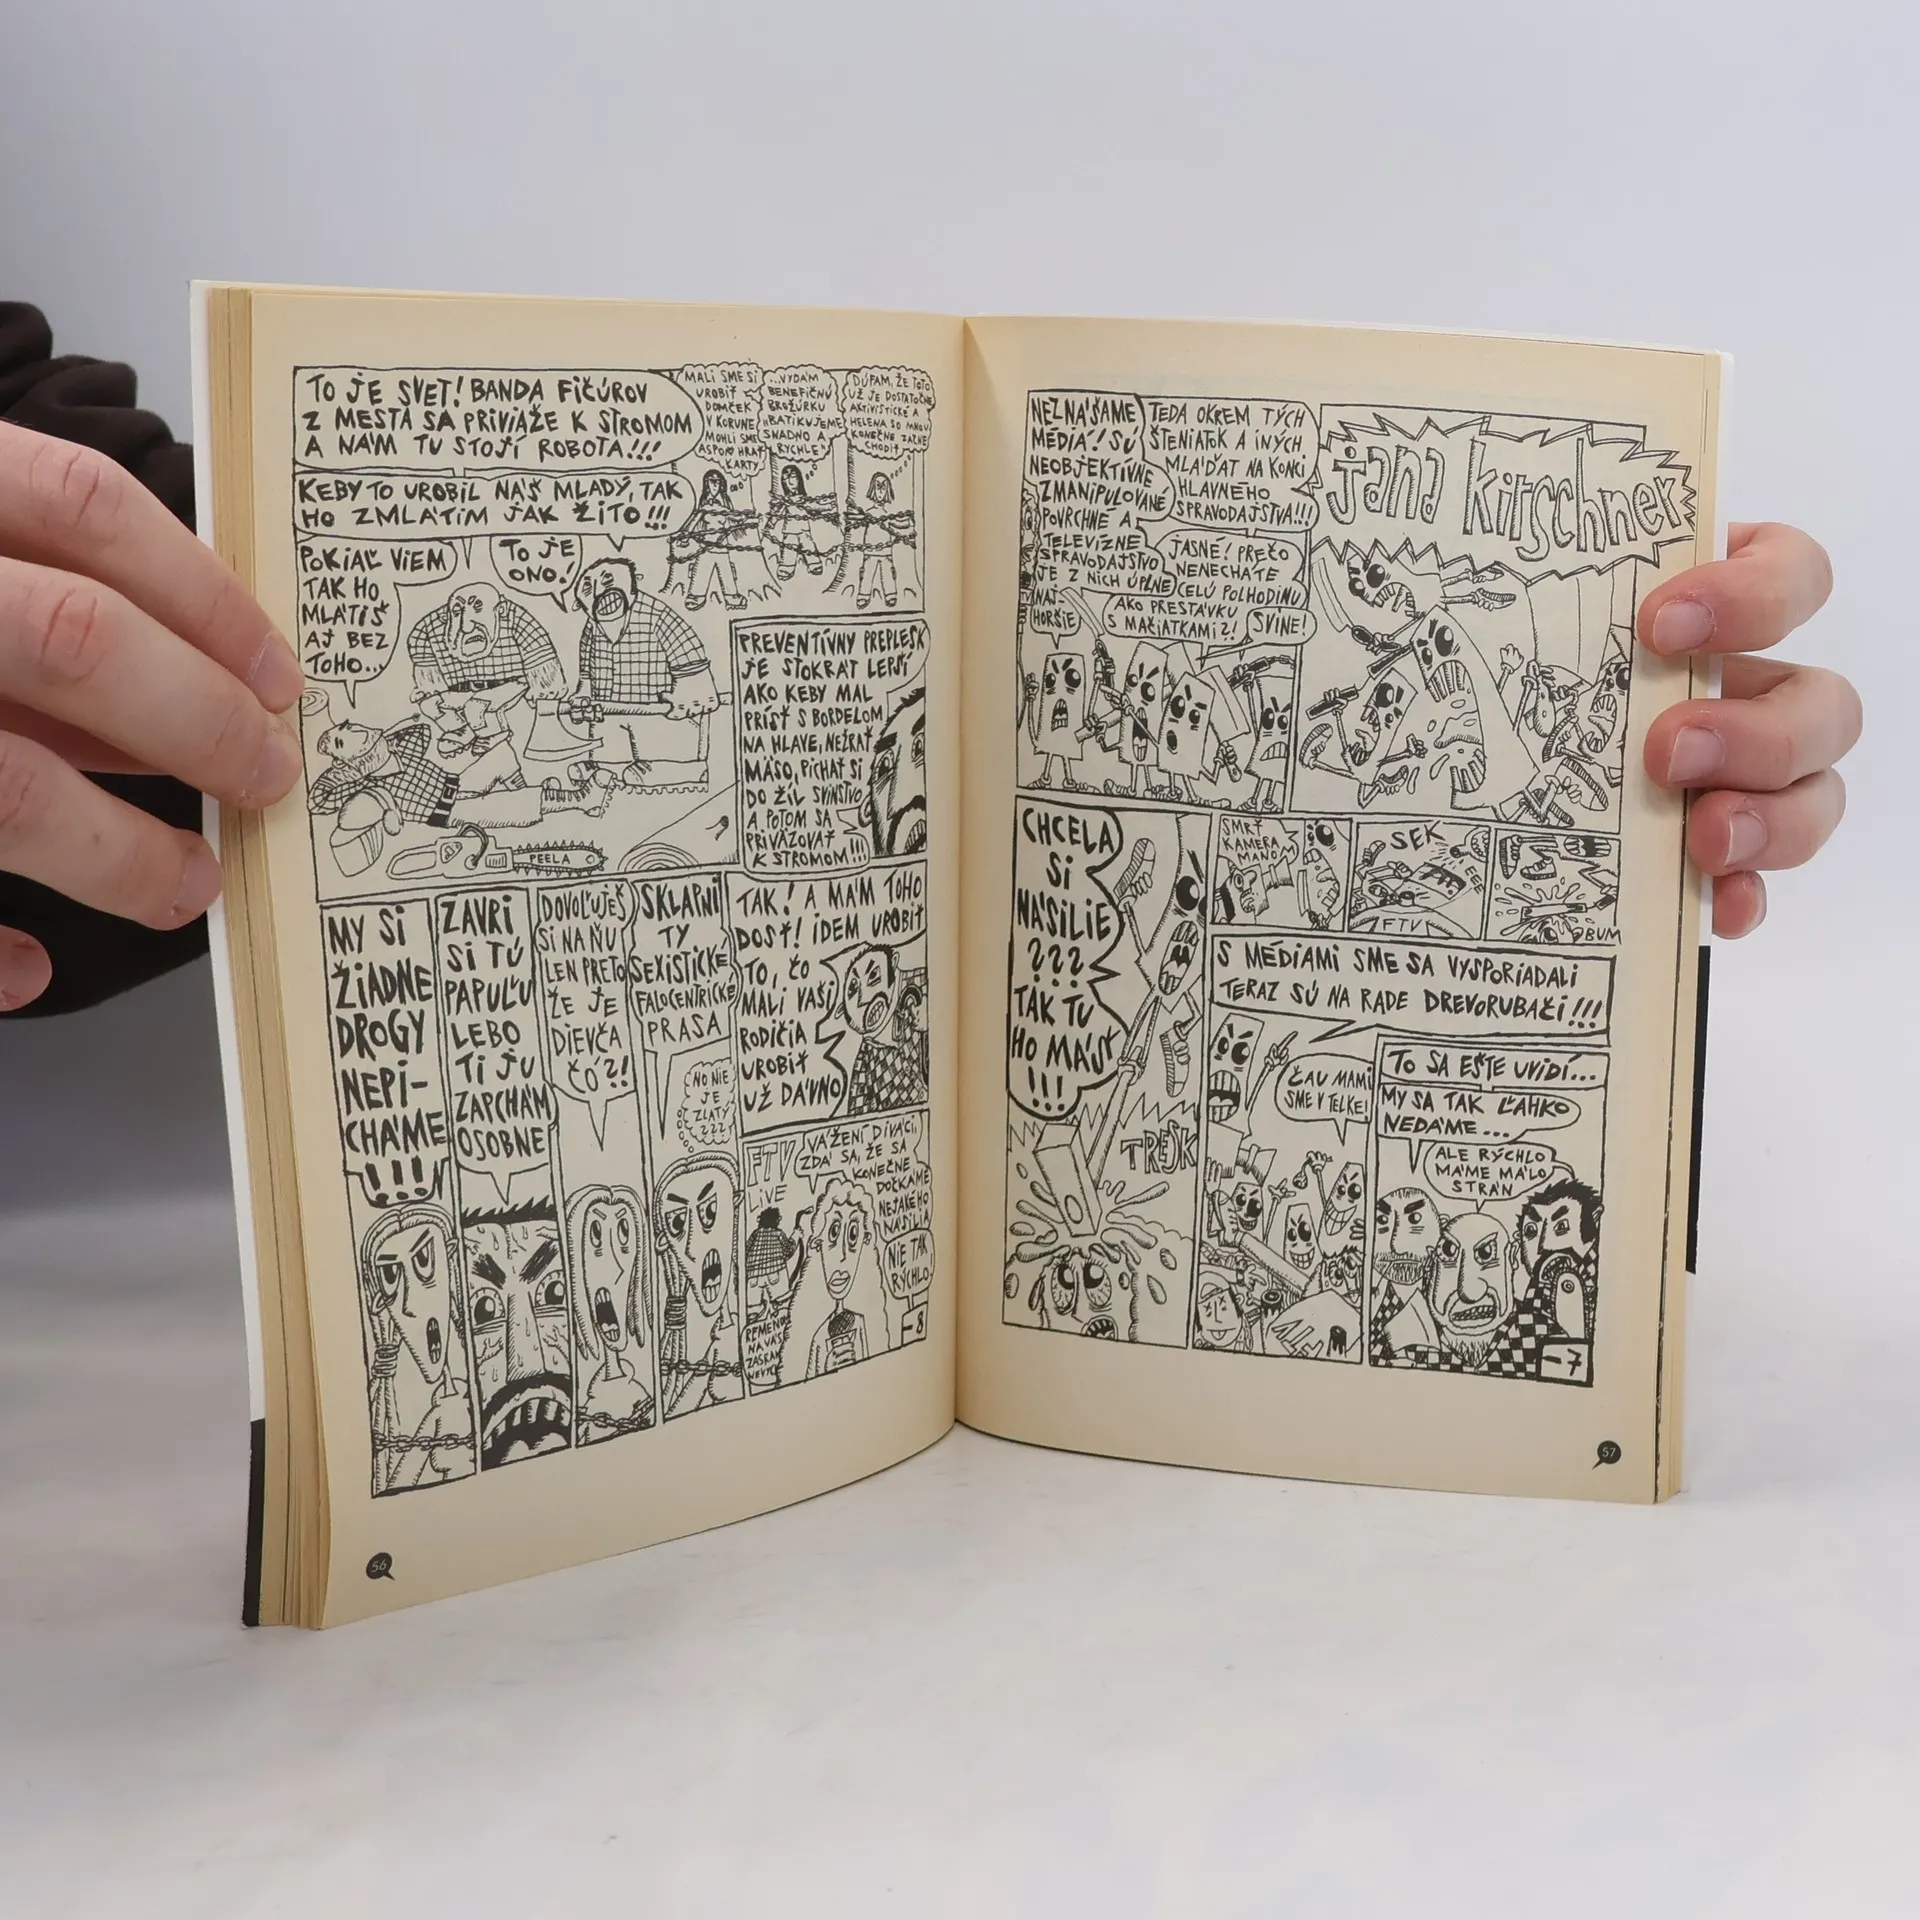 TO JE SVET! BANDA FIČÚROV
Z MESTA SA PRIVIAŽE K STROMOM
A NÁM TU STOJÍ ROBOTA!!!
KEBY TO UROBIL NÁŠ MLADÝ, TAK
HO ZMLÁTIM JAK ŽITO!!!
POKIAĽ VIEM
TAK HO
MLÁTIŠ
AJ BEZ
TOHO...
TO JE
ONO!
MALI SME SI
UROBIŤ
DOMČEK
V KORUNE
MOHLI SME
ASPOŇ HRAŤ
KARTY
...VYDÁM
BENEFIČNÚ
BROŽÚRKU
"BATIKUJEME
SNADNO A
RÝCHLE"
DÚFAM, ŽE TOTO
UŽ JE DOSTATOČNE
AKTIVISTICKÉ A
HELENA SO MNOU
KONEČNE ZAČNE
CHODIŤ
PEELA
PREVENTÍVNY PREPLESK
JE STOKRÁT LEPŠÍ
AKO KEBY MAL
PRÍSŤ S BORDELOM
NA HLAVE, NEŽRAŤ
MÄSO, PICHAŤ SI
DO ŽÍL SVINSTVO
A POTOM SA
PRIVÄZOVAŤ
K STROMOM!!!
MY SI
ŽIADNE
DROGY
NEPI-
CHÁME
!!!
ZAVRI
SI TÚ
PAPUĽU
LEBO
TI JU
ZAPCHÁM
OSOBNE
DOVOĽUJEŠ
SI NA ŇU
LEN PRETO
ŽE JE
DIEVČA
ČO?!
SKLAPNI
TY
SEXISTICKÉ,
FALOCENTRICKÉ
PRASA
NO NIE
JE
ZLATÝ
???
TAK! A MÁM TOHO
DOSŤ! IDEM UROBIŤ
TO, ČO
MALI VAŠI
RODIČIA
UROBIŤ
UŽ DÁVNO
FTV
LIVE
VÁŽENÍ DIVÁCI,
ZDÁ SA, ŽE SA
KONEČNE
DOČKÁME
NEJAKÉHO
NÁSILIA
NIE TAK
RÝCHLO
REMEŇ
NA VÁS
-8
56
NEZNÁŠAME
MÉDIÁ! SÚ
NEOBJEKTÍVNE
ZMANIPULOVANÉ
POVRCHNÉ A
TELEVÍZNE
SPRAVODAJSTVO
JE Z NICH ÚPLNE
NAJ-
HORŠIE
TEDA OKREM TÝCH
ŠTENIATOK A INÝCH
MLÁĎAT NA KONCI
HLAVNÉHO
SPRAVODAJSTVA!!!
JASNÉ! PREČO
NENECHÁTE
CELÚ POLHODINU
AKO PRESTÁVKU
S MAČIATKAMI?!
SVINE!
jana kirschner
CHCELA
SI
NÁSILIE
???
TAK TU
HO MÁŠ
!!!
TRESK
SMRŤ
KAMERA
MANOM
SEK
EEE
FTV
BUM
S MÉDIAMI SME SA VYSPORIADALI
TERAZ SÚ NA RADE DREVORUBAČI!!!
ČAU MAMI
SME V TELKE!
TO SA EŠTE UVIDÍ...
MY SA TAK ĽAHKO
NEDÁME...
ALE RÝCHLO
MÁME MÁLO
STRÁN
-7
57